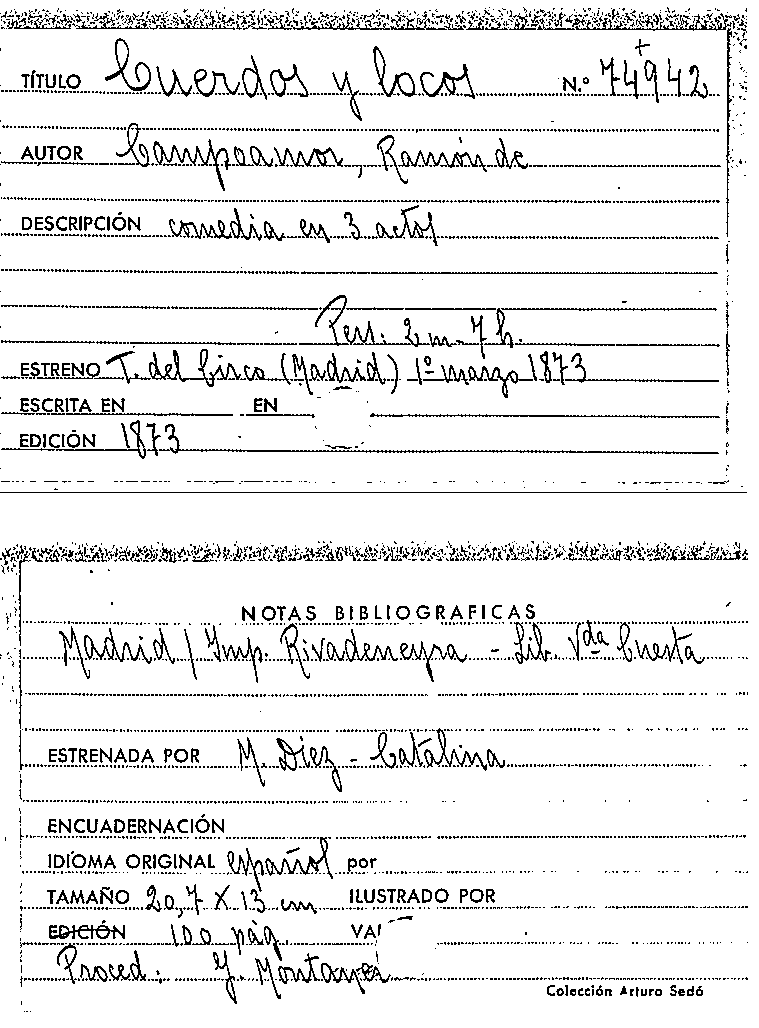 TÍTULO Cuerdos y locos N.º 74942
AUTOR Campoamor, Ramón de
DESCRIPCIÓN comedia en 3 actos
Pers: 2 m. 7 h.
ESTRENO T. del Circo (Madrid) 1º marzo 1873
ESCRITA EN EN
EDICIÓN 1873
NOTAS BIBLIOGRAFICAS
Madrid / Imp. Rivadeneyra - Lib. Vda Cuesta
ESTRENADA POR M. Diez - Catalina
ENCUADERNACIÓN
IDIOMA ORIGINAL español por
TAMAÑO 20,7 X 13 cm ILUSTRADO POR
EDICIÓN 100 pág. VA
Proced: J. Montaner
Colección Arturo Sedó